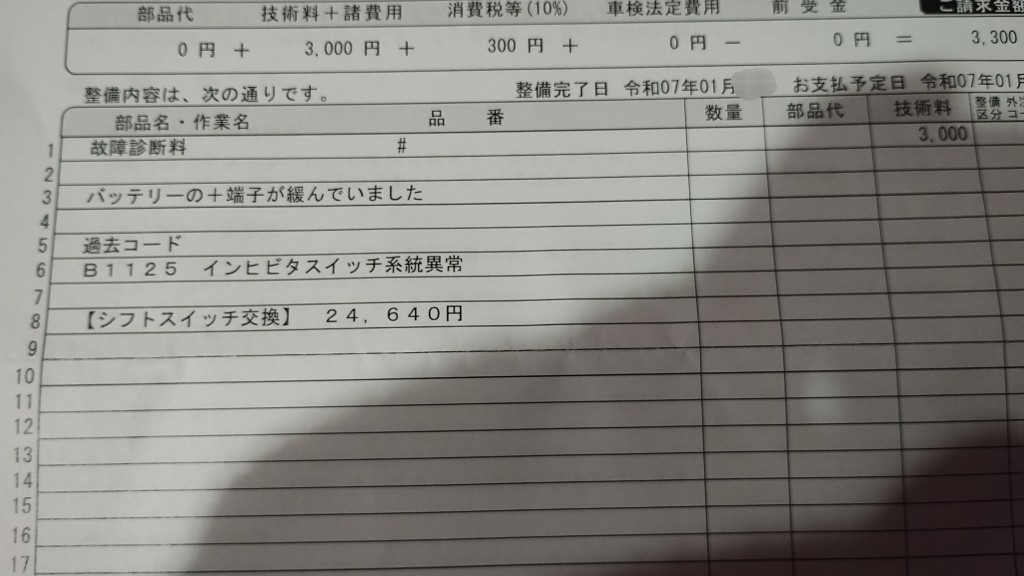 部品代 技術料＋諸費用 消費税等(10%) 車検法定費用 前受金 ご請求金額
0円 ＋ 3,000円 ＋ 300円 ＋ 0円 － 0円 ＝ 3,300
整備内容は、次の通りです。 整備完了日 令和07年01月 お支払予定日 令和07年01月
部品名・作業名 品番 数量 部品代 技術料 整備区分
1 故障診断料 # 3,000
2
3 バッテリーの＋端子が緩んでいました
4
5 過去コード
6 Ｂ１１２５ インヒビタスイッチ系統異常
7
8 【シフトスイッチ交換】 ２４，６４０円
9
10
11
12
13
14
15
16
17